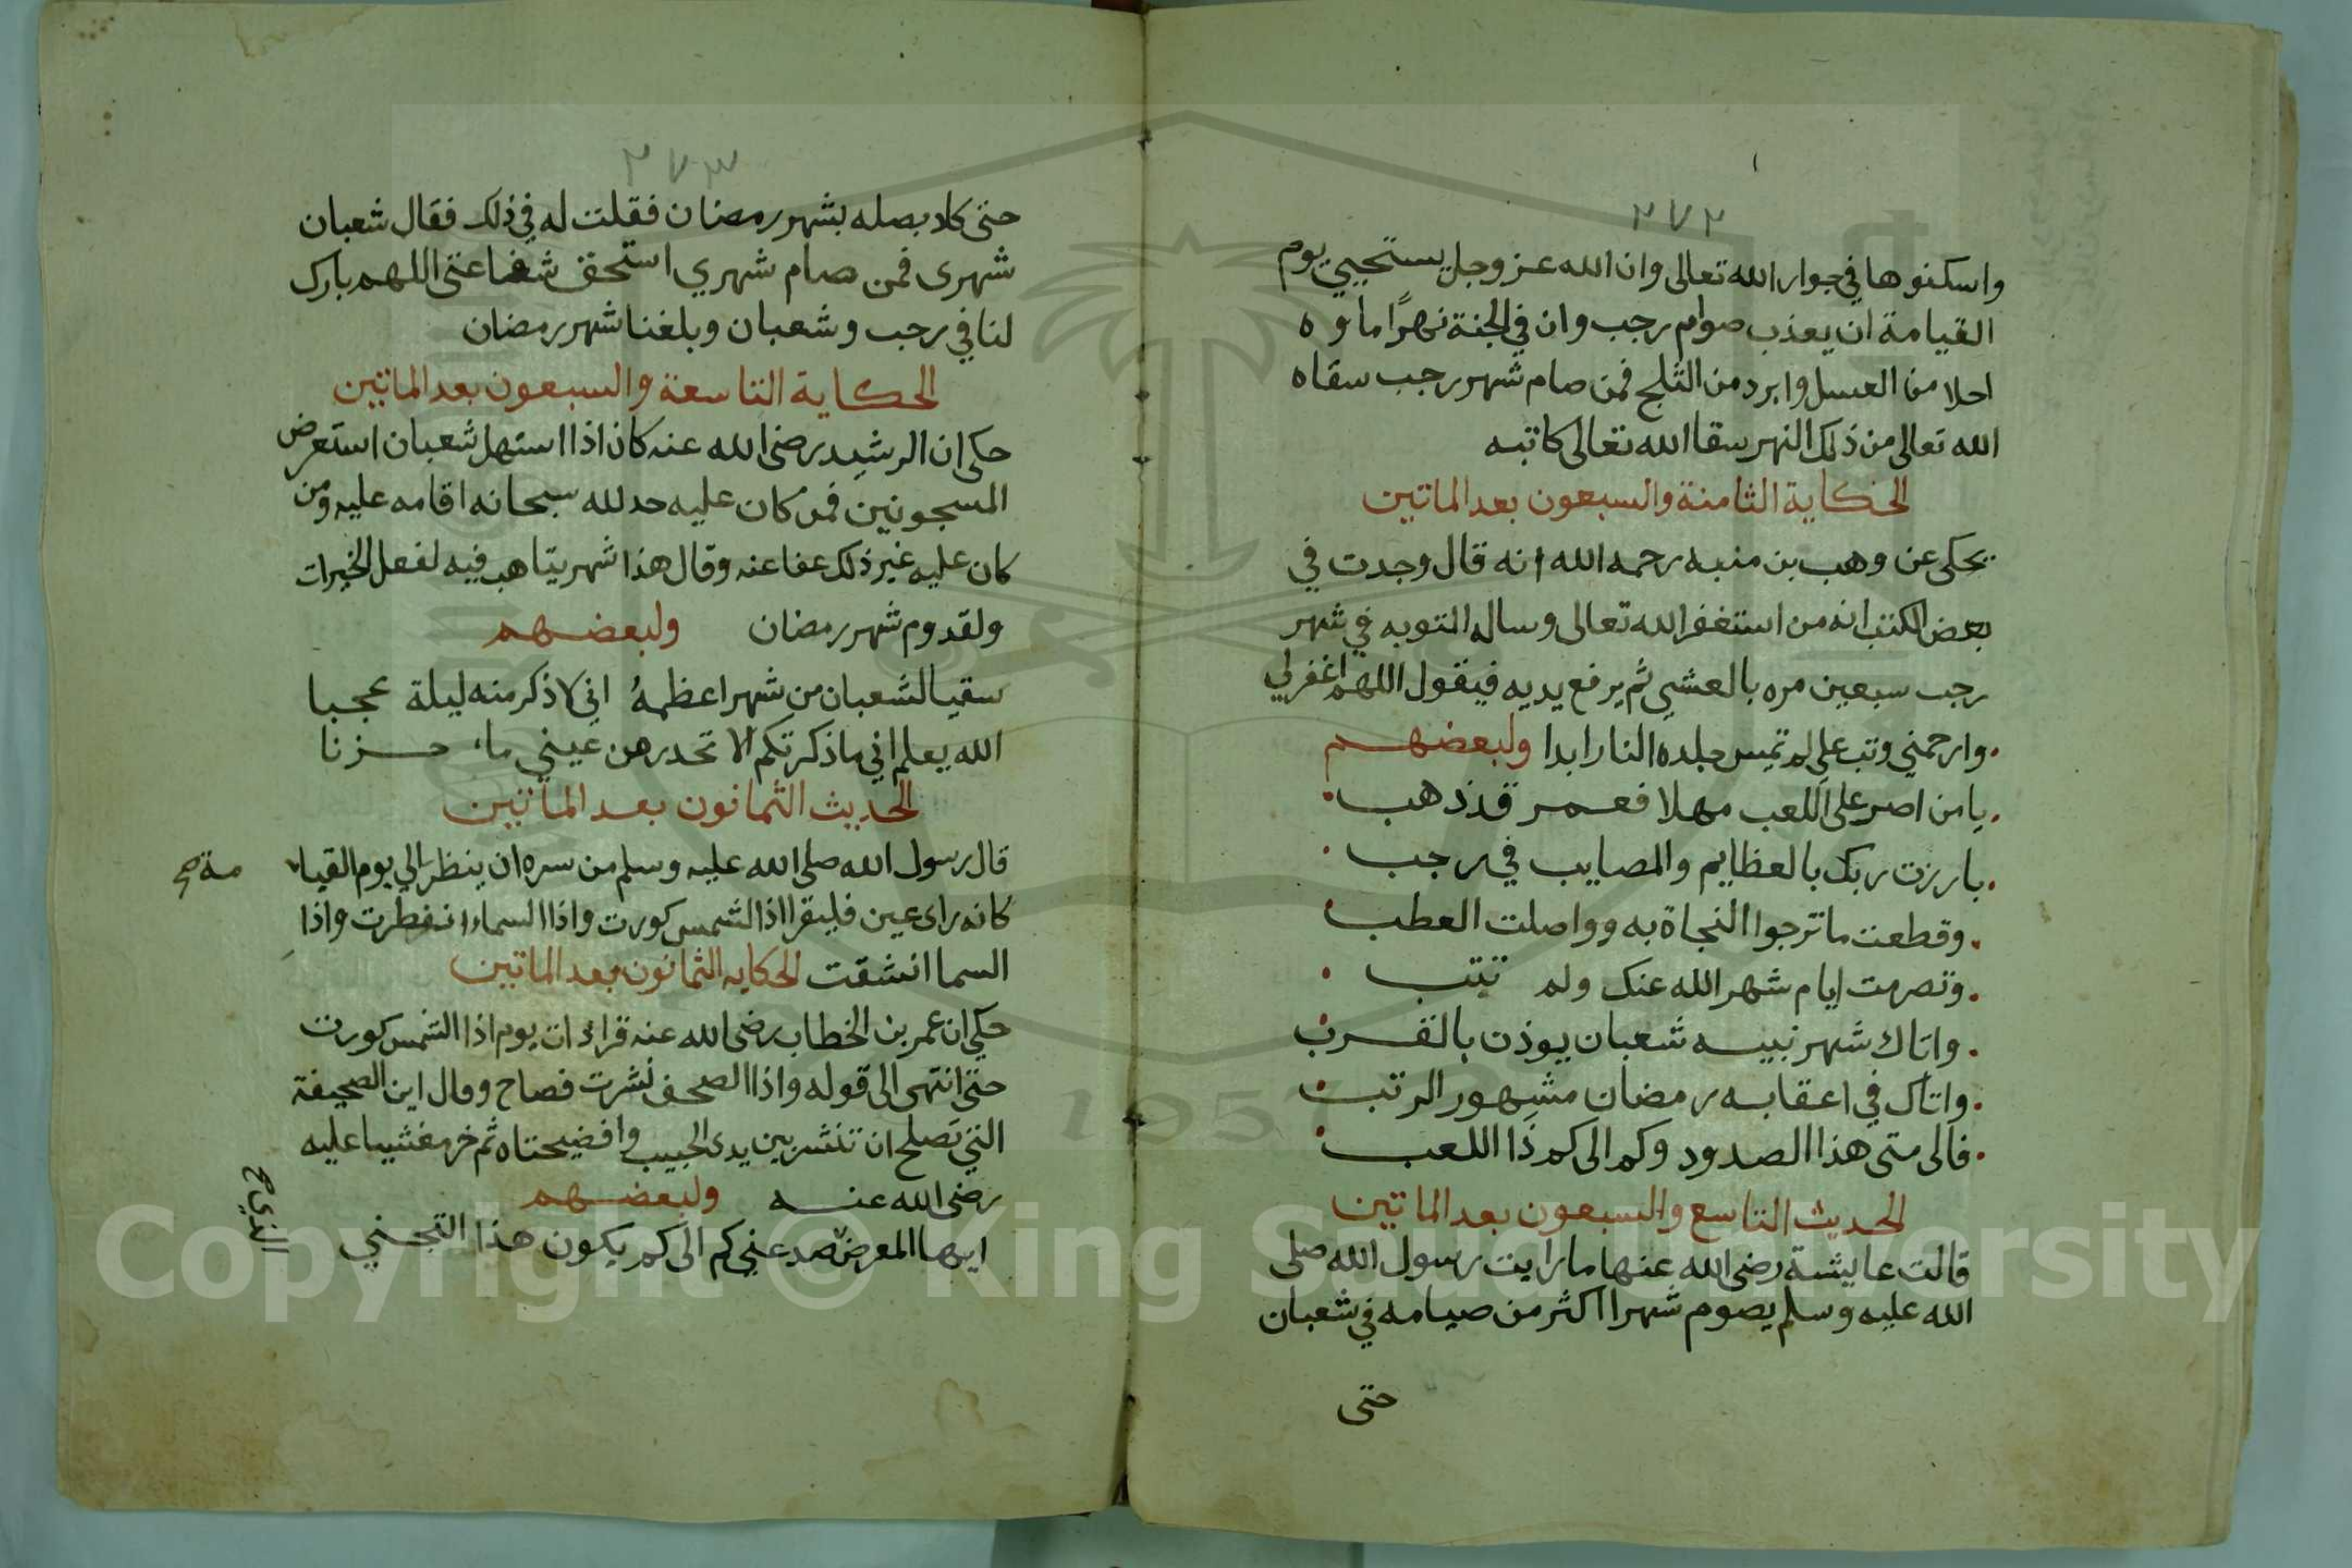 ٢٧٢
واسكنوها في جوار الله تعالى وان الله عز وجل يستحيي يوم
القيامة ان يعذب صوام رجب وان في الجنة نهرًا ماوه
احلا من العسل وابرد من الثلج فمن صام شهر رجب سقاه
الله تعالى من ذلك النهر سقا الله تعالى كاتبه
الحكاية الثامنة والسبعون بعد الماتين
يحكى عن وهب بن منبه رحمه الله انه قال وجدت في
بعض الكتب انه من استغفر الله تعالى وساله التوبه في شهر
رجب سبعين مره بالعشي ثم يرفع يديه فيقول اللهم اغفر لي
وارحمني وتب علي لم تمس جلده النار ابدا ولبعضهم
يا من اصر على اللعب مهلا فعمر قد ذهب
بارزت ربك بالعظايم والمصايب في رجب
وقطعت ما ترجوا النجاة به وواصلت العطب
وتصرمت ايام شهر الله عنك ولم تتب
واتاك شهر نبيه شعبان يوذن بالقرب
واتاك في اعقابه رمضان مشهور الرتب
فالى متى هذا الصدود وكم الى كم ذا اللعب
الحديث التاسع والسبعون بعد الماتين
قالت عايشة رضى الله عنها ما رايت رسول الله صلى
الله عليه وسلم يصوم شهرا اكثر من صيامه في شعبان
حتى
٢٧٣
حتى كاد يصله بشهر رمضان فقلت له في ذلك فقال شعبان
شهرى فمن صام شهري استحق شفاعتى اللهم بارك
لنا في رجب وشعبان وبلغنا شهر رمضان
الحكاية التاسعة والسبعون بعد الماتين
حكى ان الرشيد رضى الله عنه كان اذا استهل شعبان استعرض
المسجونين فمن كان عليه حد لله سبحانه اقامه عليه ومن
كان عليه غير ذلك عفا عنه وقال هذا شهر يتاهب فيه لفعل الخيرات
ولقدوم شهر رمضان ولبعضهم
سقيا لشعبان من شهر اعظمهُ اني لاذكر منه ليلة عجبا
الله يعلم اني ما ذكرتكم الا تحدر من عيني ماء حزنا
الحديث الثمانون بعد الماتين
قال رسول الله صلى الله عليه وسلم من سره ان ينظر الي يوم القيا
مة صح
كانه راى عين فليقرا اذا الشمس كورت واذا السماء انفطرت واذا
السما انشقت الحكايه الثمانون بعد الماتين
حكي ان عمر بن الخطاب رضى الله عنه قراء ذات يوم اذا الشمس كورت
حتى انتهى الى قوله واذا الصحف نشرت فصاح وقال اين الصحيفة
التي تصلح ان تنشر بين يدى الحبيب وافضيحتاه ثم خر مغشيا عليه
رضى الله عنه ولبعضهم
ايها المعرض صد عني كم الى كم يكون هذا التجني
الذي صح